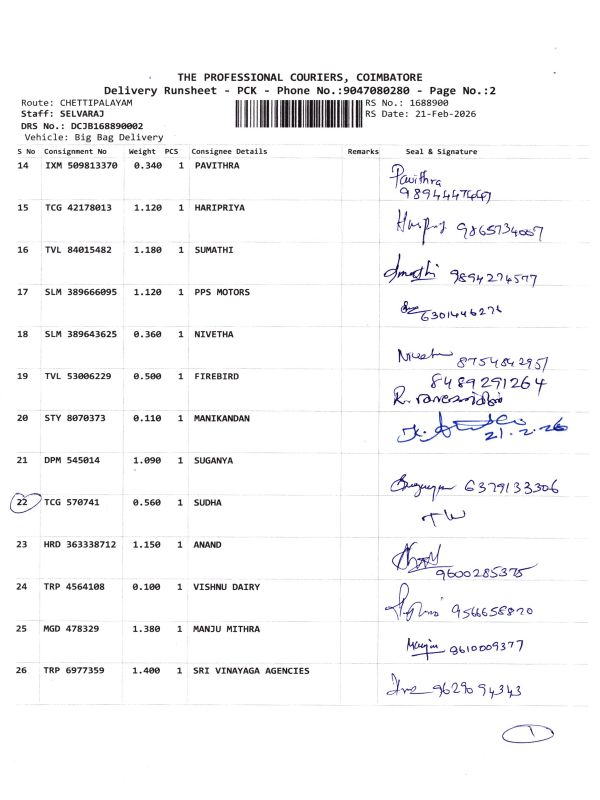 THE PROFESSIONAL COURIERS, COIMBATORE
Delivery Runsheet - PCK - Phone No.:9047080280 - Page No.:2
Route: CHETTIPALAYAM
RS No.: 1688900
Staff: SELVARAJ
RS Date: 21-Feb-2026
DRS No.: DCJB168890002
Vehicle: Big Bag Delivery
S No Consignment No Weight PCS Consignee Details Remarks Seal & Signature
14 IXM 509813370 0.340 1 PAVITHRA
Pavithra
15 TCG 42178013 1.120 1 HARIPRIYA
9865734007
16 TVL 84015482 1.180 1 SUMATHI
9894274577
17 SLM 389666095 1.120 1 PPS MOTORS
6301446276
18 SLM 389643625 0.360 1 NIVETHA
8754842951
19 TVL 53006229 0.500 1 FIREBIRD
8489291264
20 STY 8070373 0.110 1 MANIKANDAN
21.2.26
21 DPM 545014 1.090 1 SUGANYA
6379133306
22 TCG 570741 0.560 1 SUDHA
23 HRD 363338712 1.150 1 ANAND
9600285375
24 TRP 4564108 0.100 1 VISHNU DAIRY
9566658820
25 MGD 478329 1.380 1 MANJU MITHRA
9610009377
26 TRP 6977359 1.400 1 SRI VINAYAGA AGENCIES
9629094343
1